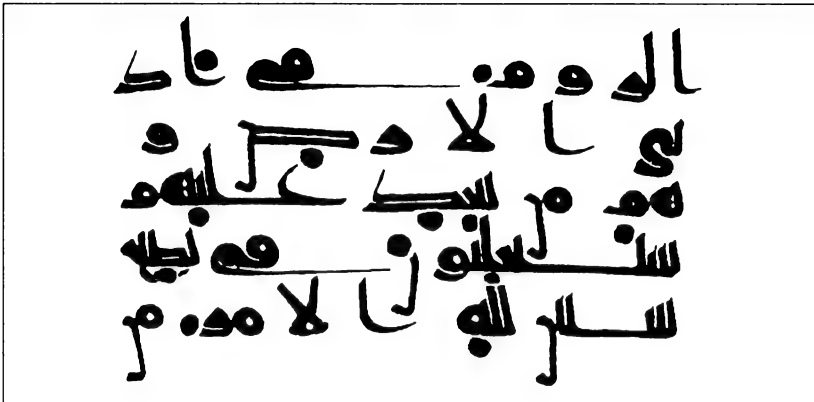 الروم في اد
نى الارض و
هم من بعد غلبهم
سيغلبون في بضع
سنين لله الامر من